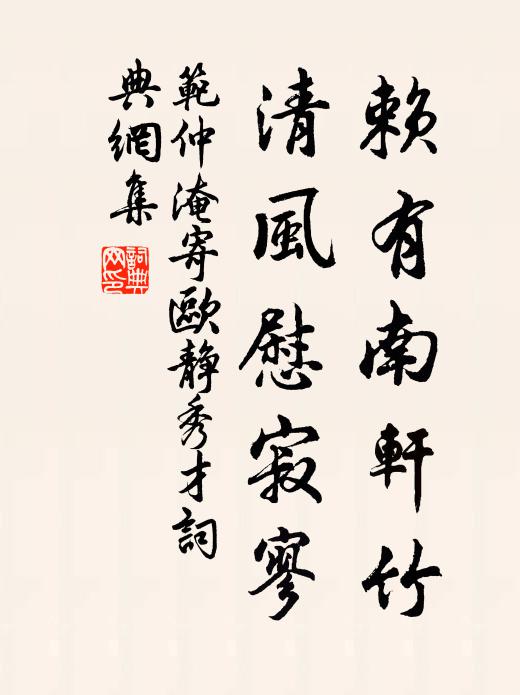 賴有南軒竹
清風慰寂寥
範仲淹寄歐靜秀才詞
典網集
詞典網印